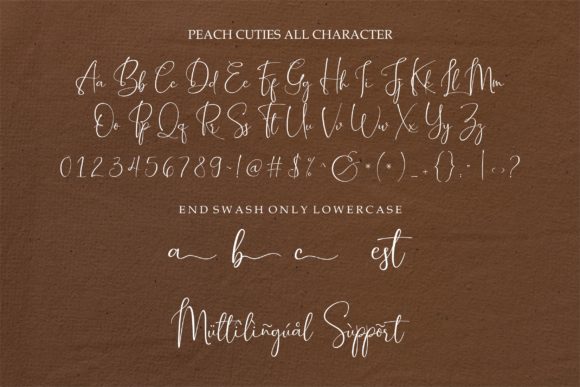 PEACH CUTIES ALL CHARACTER
Aa Bb Cc Dd Ee Ff Gg Hh Ii Jj Kk Ll Mm
Oo Pp Qq Rr Ss Tt Uu Vv Ww Xx Yy Zz
0123456789~!@#$%^&*(*)_+{}:"|<>?
END SWASH ONLY LOWERCASE
a b c est
Mültîlìñgúål Sùppõrt